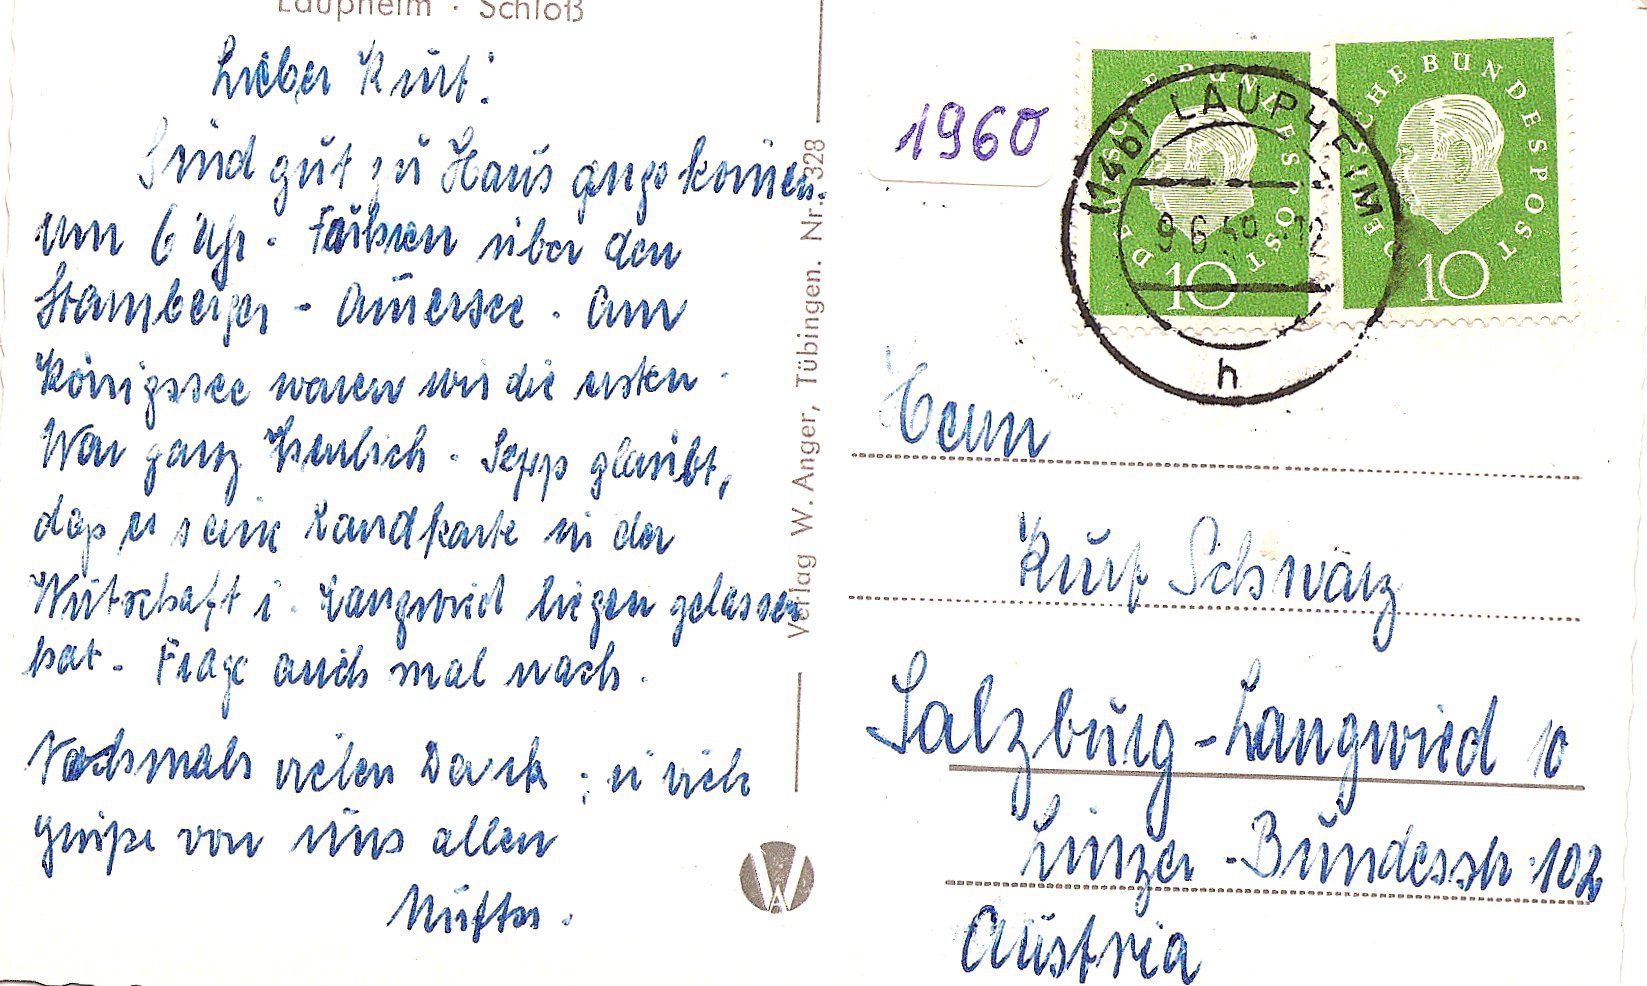 Laupheim · Schloß
Lieber Kurt!
Sind gut zu Haus angekommen.
um 6 Uhr. Fuhren über den
- Am
Königssee waren wir die ersten.
War ganz herrlich. Sepp glaubt,
daß er seine Landkarte in der
Wirtschaft i. Langwied liegen gelassen
hat. Frage auch mal nach.
Nochmals vielen Dank, u. viele
Grüße von uns allen
Mutter.
Verlag W. Anger, Tübingen. Nr. 328
W
A
1960
DEUTSCHE BUNDESPOST
10
DEUTSCHE BUNDESPOST
10
(14b) LAUPHEIM
9.6.59. 12
h
Herrn
Kurt Schwarz
Salzburg-Langwied 10
Linzer-Bundesstr. 102
Austria